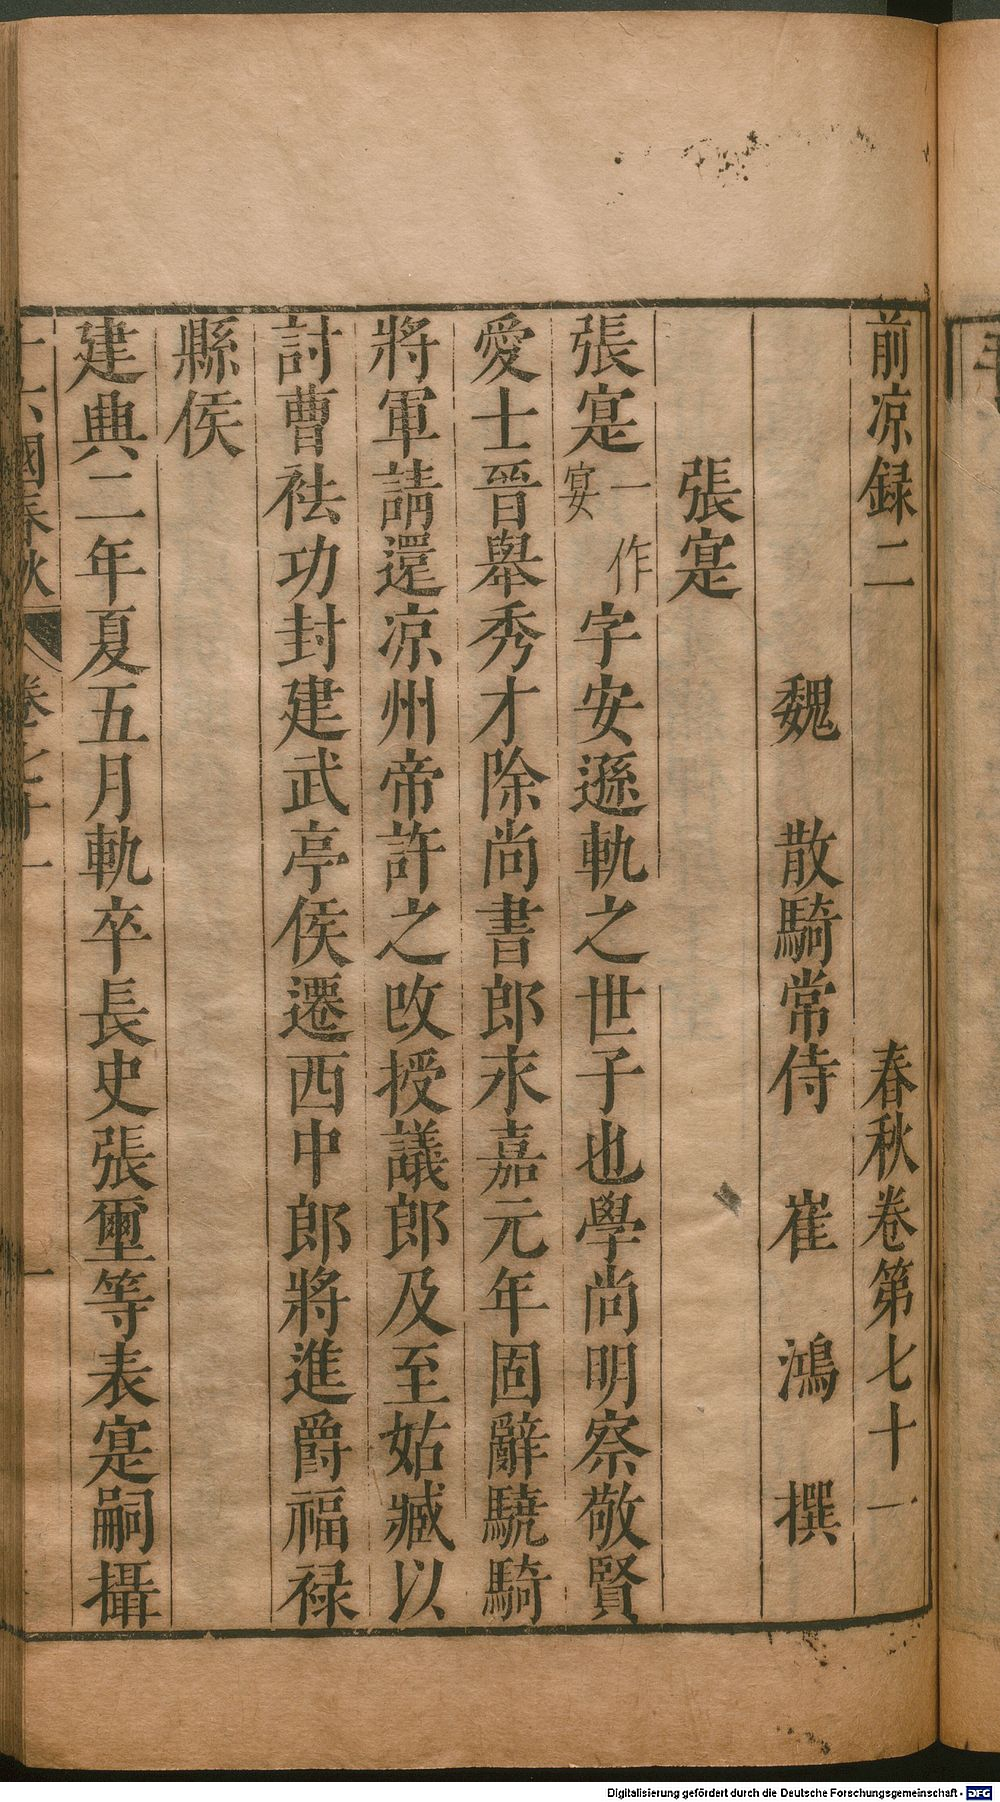 前凉録二　春秋卷第七十一
魏　散騎常侍　崔　鴻　撰
張寔
張寔一作寔字安遜軌之世子也學尚明察敬賢
愛士晉舉秀才除尚書郎永嘉元年固辭驍騎
將軍請還凉州帝許之改授議郎及至姑臧以
討曹祛功封建武亭侯遷西中郎將進爵福祿
縣侯
建興二年夏五月軌卒長史張璽等表寔嗣攝
十六國春秋　卷七十一　一
Digitalisierung gefördert durch die Deutsche Forschungsgemeinschaft - DFG